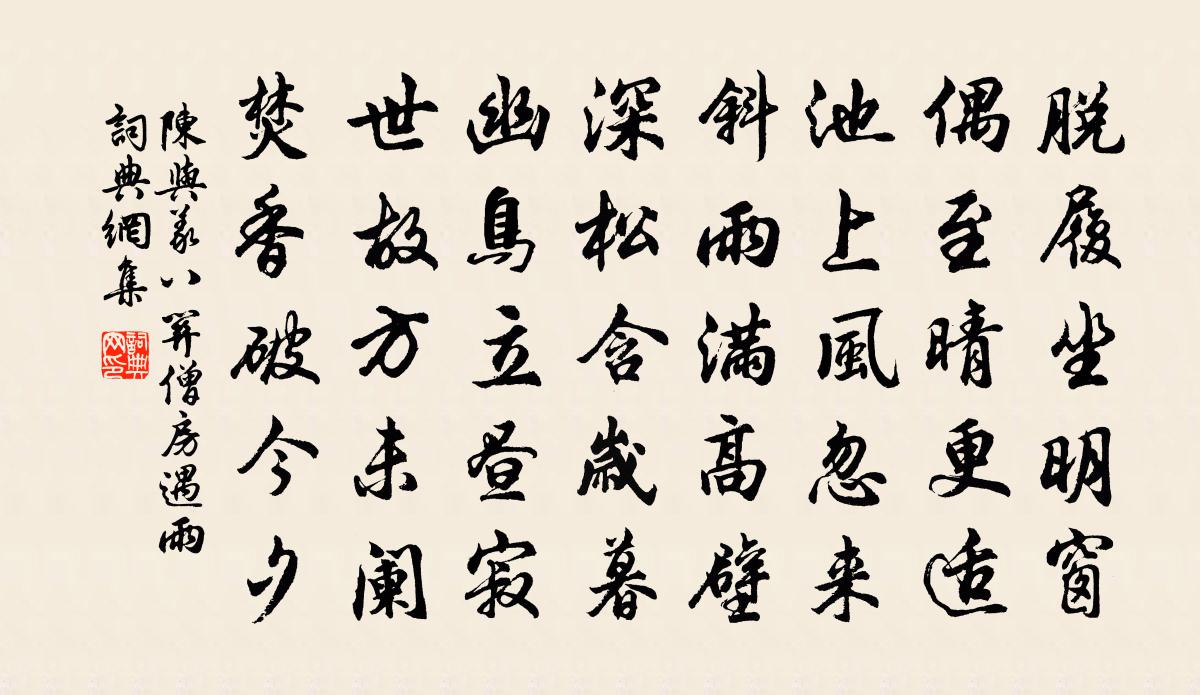 脱履坐明窗
偶至晴更适
池上風忽来
斜雨滿高壁
深松含歲暮
幽鳥立昼寂
世故方未阑
焚香破今夕
陳與義八關僧房遇雨
詞典網集
詞典网印